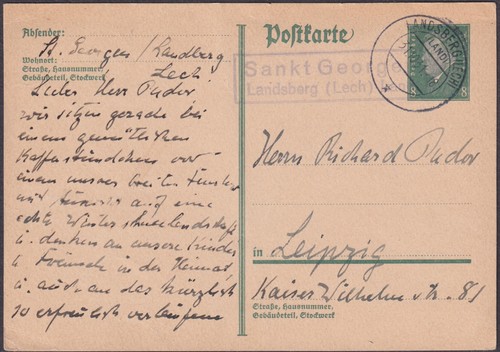 Absender:
St. Georgen / Landsberg
Lech
Wohnort:
Straße, Hausnummer,
Gebäudeteil, Stockwerk
Lieber Herr Pudor
wir sitzen gerade bei
einem gemütlichen
Kaffeestündchen vor
einem unserer breiten Fenster
mit auf eine
echte Winterschneelandschaft
u. denken an unsere Kinder
u. Freunde in der Heimat,
u. auch an das kürzlich
so erfreulich verlaufene
Postkarte
Sankt Georgen
Landsberg (Lech) Land
LANDSBERG (LECH)
(LAND)
8 8
Herrn Richard Pudor
in Leipzig
Kaiser Wilhelm str. 81
Straße, Hausnummer,
Gebäudeteil, Stockwerk